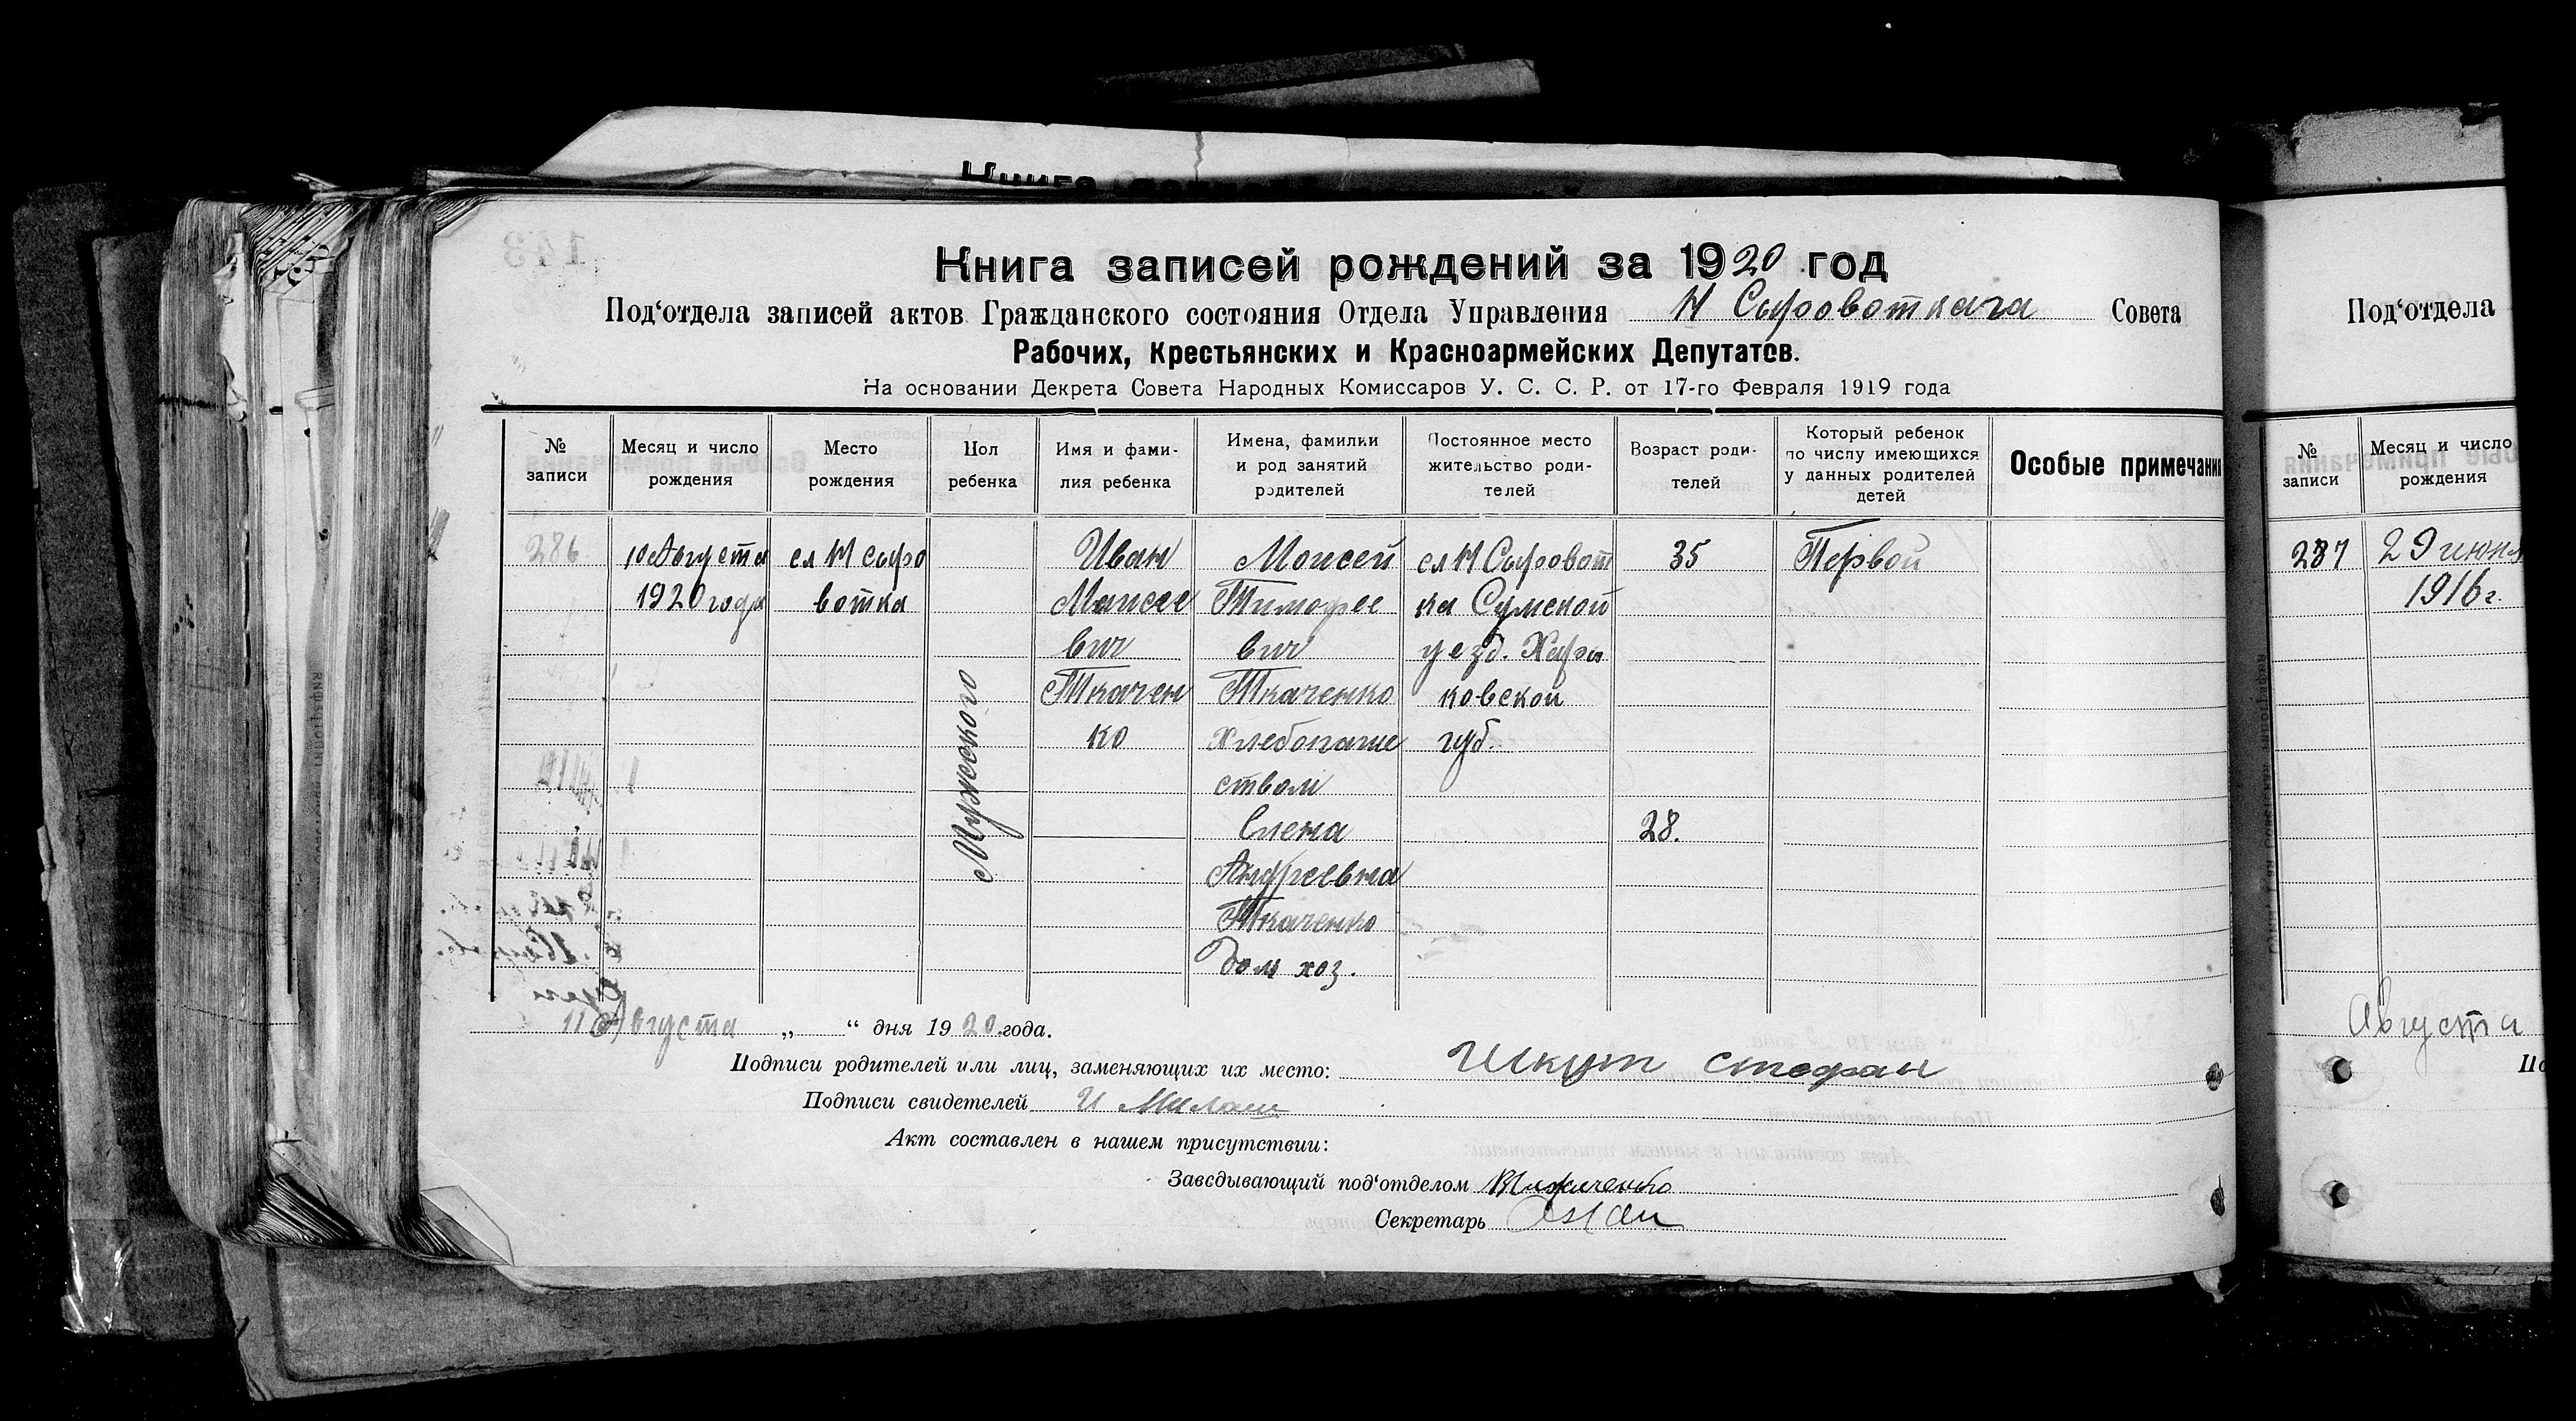 Книга записей рождений за 1920 год
Под‘отдела записей актов Гражданского состояния Отдела Управления Н Сыроваткага Совета
Рабочих, Крестьянских и Красноармейских Депутатов.
На основании Декрета Совета Народных Комиссаров У. С. С. Р. от 17-го Февраля 1919 года
№ записи
Месяц и число рождения
Место рождения
Пол ребенка
Имя и фами-
лия ребенка
Имена, фамилии
и род занятий
родителей
Постоянное место
жительство роди-
телей
Возраст роди-
телей
Который ребенок
по числу имеющихся
у данных родителей
детей
Особые примечания
286
10 Августа
1920 года
сл Н сыро
вотка
Мужеского
Иван
Моисее
вич
Ткачен
ко
Моисей
Тимофее
вич
Ткаченко
Хлебопаше
ством
Елена
Андреевна
Ткаченко
Дом хоз.
сл Н Сыроват
ка Сумской
уезд. Харь
ковской
губ.
35
28.
Первой
11 Августа „ “ дня 1920 года.
Подписи родителей или лиц, заменяющих их место: Шкут стефан
Подписи свидетелей И Милаш
Акт составлен в нашем присутствии:
Заведывающий под‘отделом
Секретарь
Под‘отдела
№
записи
Месяц и число
рождения
287
29 июня
1916 г.
Августа